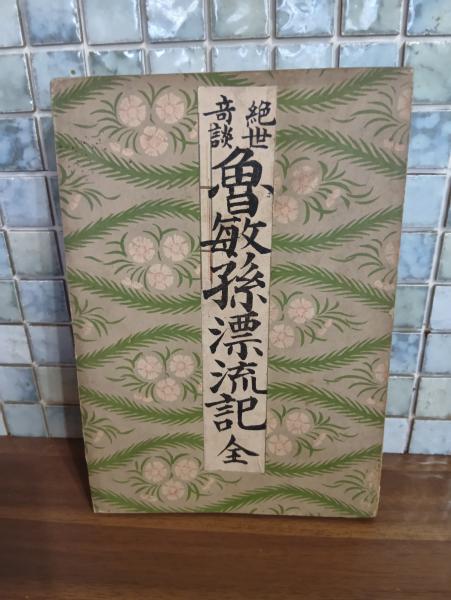 絶世
奇談
魯敏孫漂流記 全